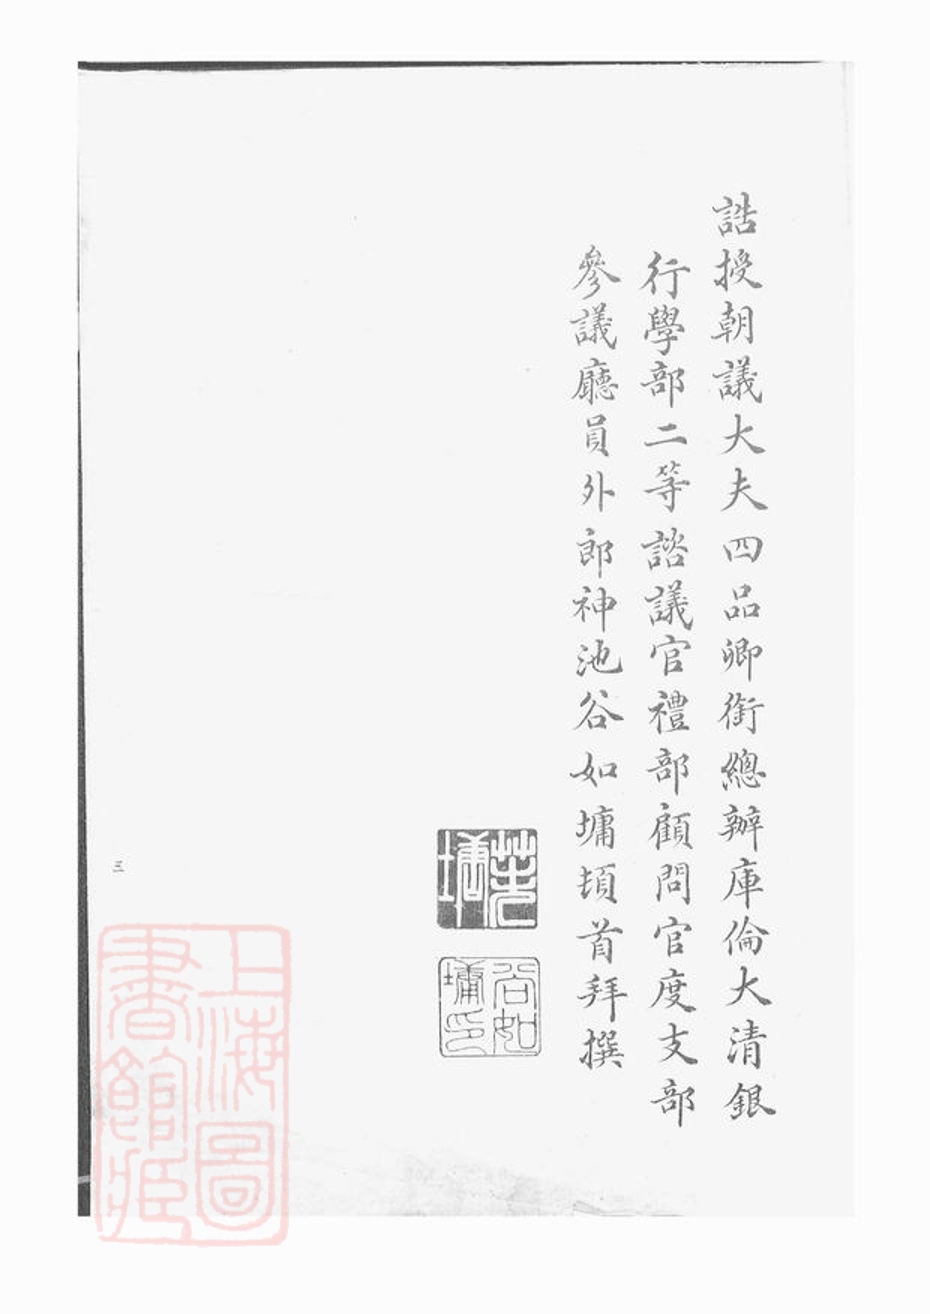 誥授朝議大夫四品卿銜總辦庫倫大清銀
行學部二等諮議官禮部顧問官度支部
參議廳員外郎神池谷如墉頓首拜撰
谷如
墉印
三
上海圖
書館藏